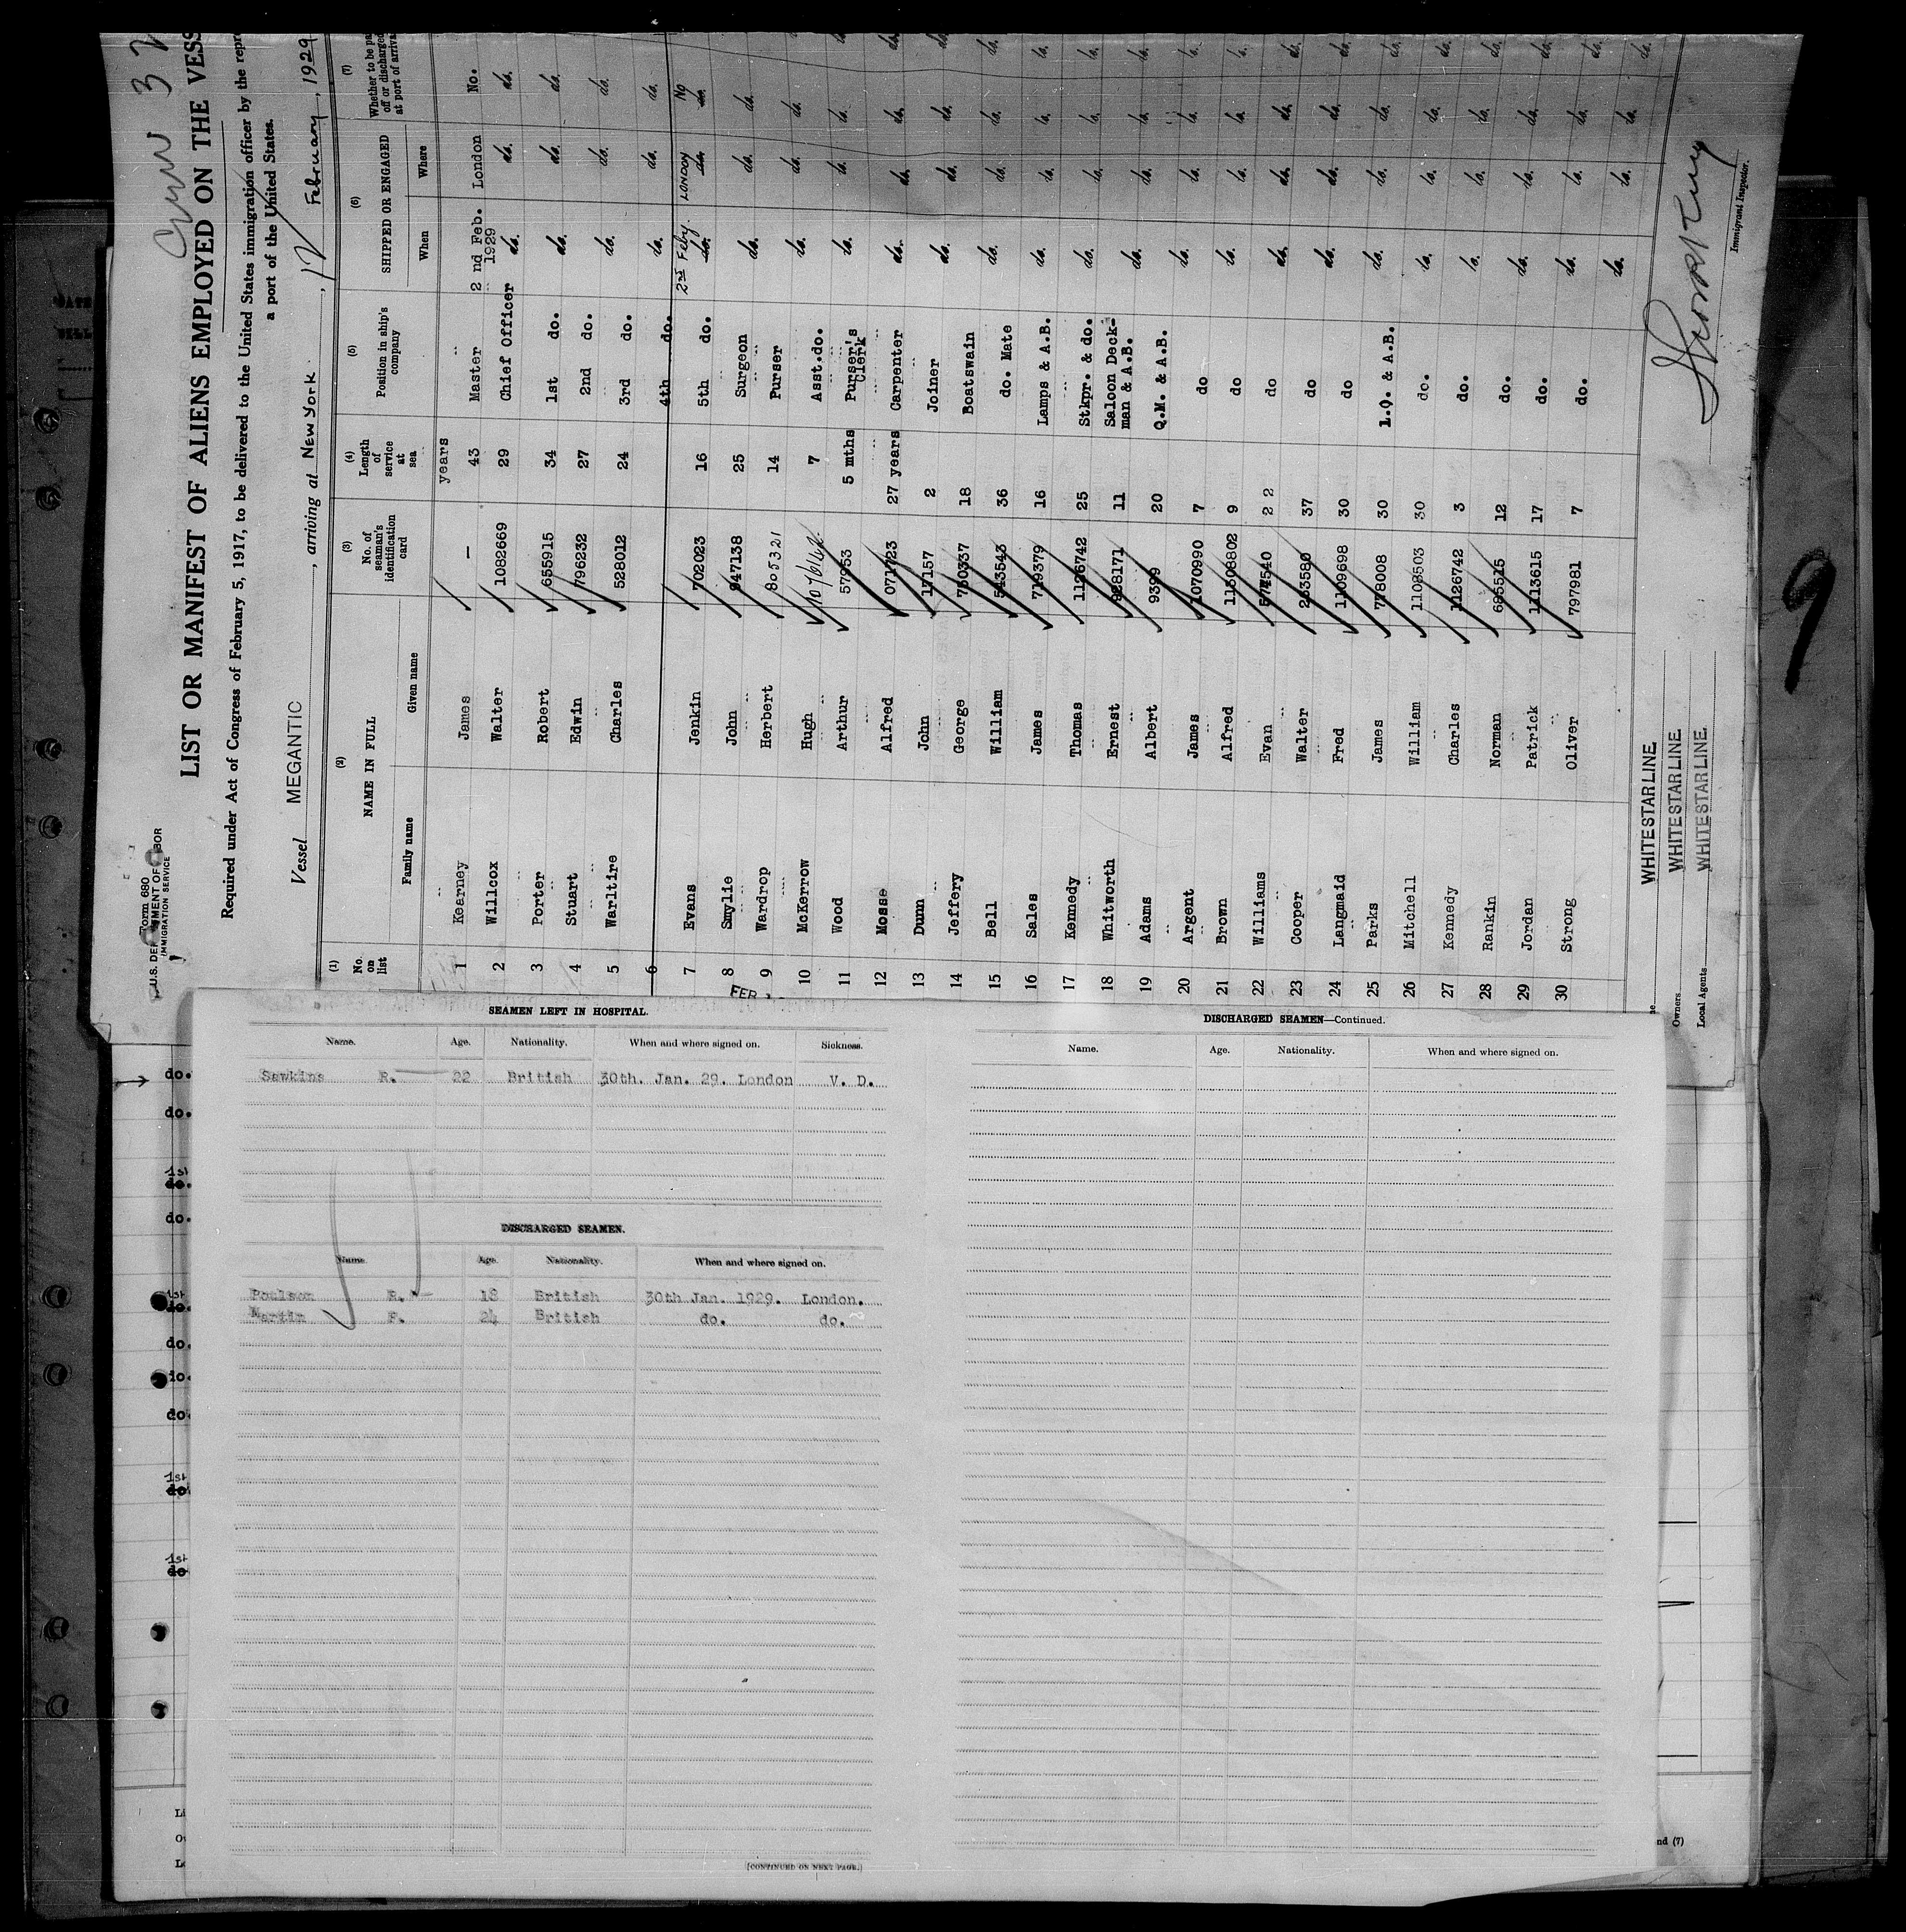 Form 680
U.S. DEPARTMENT OF LABOR
IMMIGRATION SERVICE
Crew 32
LIST OR MANIFEST OF ALIENS EMPLOYED ON THE VESS
Required under Act of Congress of February 5, 1917, to be delivered to the United States immigration officer by the repre
a port of the United States.
Vessel MEGANTIC , arriving at New York , 12 February , 1929
(1) (2) (3) (4) (5) (6) (7)
No. on list NAME IN FULL No. of seaman's identification card Length of service at sea Position in ship's company SHIPPED OR ENGAGED Whether to be pa off or discharged at port of arriva
Family name Given name When Where
years
1 Kearney James — 43 Master 2nd Feb. 1929 London No.
2 Willcox Walter 1082669 29 Chief Officer do. do. do.
3 Porter Robert 655915 34 1st do. do. do. do.
4 Stuart Edwin 796232 27 2nd do. do. do. do.
5 Warltire Charles 528012 24 3rd do. do. do. do.
6 4th do.
7 Evans Jenkin 702023 16 5th do. 2nd Feby. LONDON No
8 Smylie John 947138 25 Surgeon do. do. do.
9 Wardrop Herbert 805321 14 Purser do. do. do.
10 McKerrow Hugh 7 Asst.do. do. do. do.
11 Wood Arthur 57953 5 mths Purser's Clerk do. do. do.
12 Mosse Alfred 071723 27 years Carpenter do. do. do.
13 Dunn John 17157 2 Joiner do. do. do.
14 Jeffery George 730337 18 Boatswain do. do. do.
15 Bell William 543543 36 do. Mate do. do. do.
16 Sales James 719379 16 Lamps & A.B. do. do. do.
17 Kennedy Thomas 1126742 25 Stkpr. & do. do. do. do.
18 Whitworth Ernest 928171 11 Saloon Deck-man & A.B. do. do. do.
19 Adams Albert 9399 20 Q.M. & A.B. do. do. do.
20 Argent James 1070990 7 do do. do. do.
21 Brown Alfred 11308802 9 do do. do. do.
22 Williams Evan 574540 22 do do. do. do.
23 Cooper Walter 233580 37 do do. do. do.
24 Langmaid Fred 1109698 30 do do. do. do.
25 Parks James 778008 30 L.Q. & A.B. do. do. do.
26 Mitchell William 1108503 30 do. do. do. do.
27 Kennedy Charles 1126742 3 do. do. do. do.
28 Rankin Norman 685515 12 do. do. do. do.
29 Jordan Patrick 1113615 17 do. do. do. do.
30 Strong Oliver 797981 7 do. do. do. do.
WHITE STAR LINE
Owners WHITE STAR LINE
Local Agents WHITE STAR LINE
Immigrant Inspector.
FEB
9
SEAMEN LEFT IN HOSPITAL.
Name. Age. Nationality. When and where signed on. Sickness.
Sawkins R. 22 British 30th. Jan. 29. London V. D.
DISCHARGED SEAMEN.
Name. Age. Nationality. When and where signed on.
Poulson R. 18 British 30th Jan. 1929. London.
Martin F. 24 British do. do.
[CONTINUED ON NEXT PAGE.]
DISCHARGED SEAMEN—Continued.
Name. Age. Nationality. When and where signed on.
do.
do.
1st
do.
do.
1st
do.
do.
do.
do
1st
do
1st
do
nd (7)